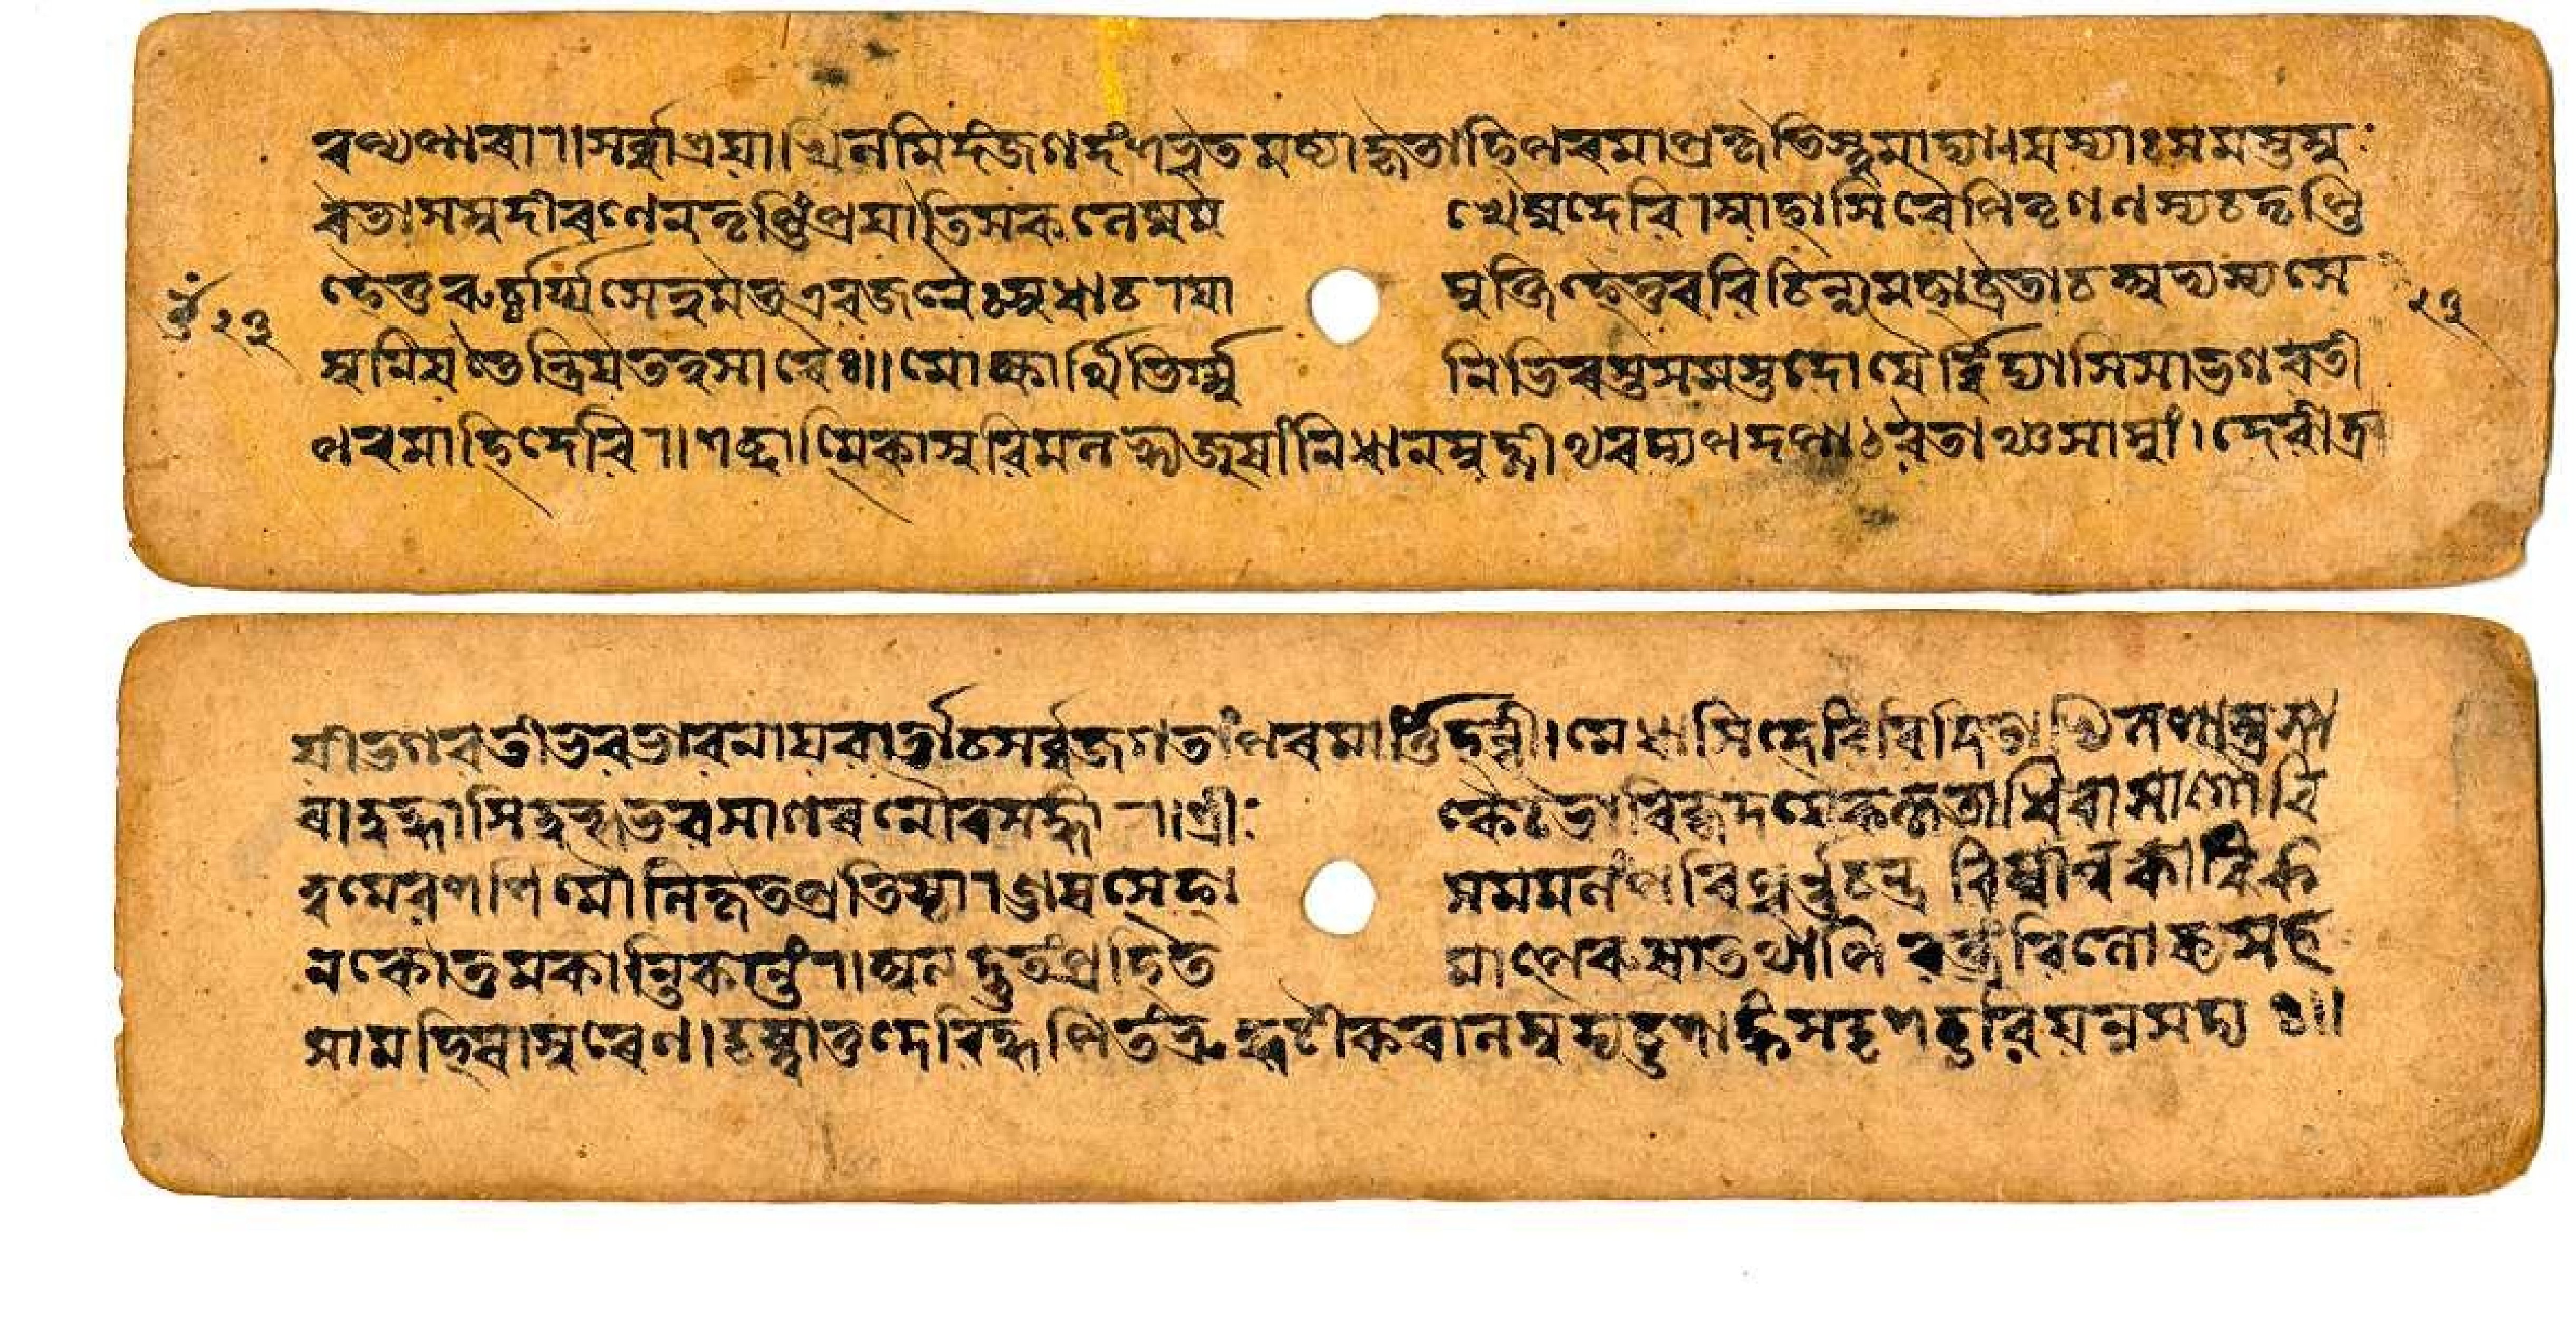 রপ্যপারা । সর্ব্বাশ্রয়াখিলমিদং জগদংশভূতমব্যাকৃতা হি পরমা প্রকৃতিস্ত্বমাদ্যা । যস্যাঃ সমস্তসু
রতা সমুদীরণেন তৃপ্তিং প্রয়াতি সকলেষু মখেষু দেবি । স্বাহাসি বৈ পিতৃগণস্য চ তৃপ্তি
হেতুরুচ্চার্য্যসে ত্বমত এব জনৈঃ স্বধা চ । যা মুক্তিহেতুরবিচিন্ত্যমহাব্রতা চ অভ্যস্যসে
২৩ ২৩
সুনিয়তেন্দ্রিয়তত্ত্বসারৈঃ ॥ মোক্ষার্থিভির্ম্মুনিভিরস্তসমস্তদোষৈর্ব্বিদ্যাসি সা ভগবতী
পরমা হি দেবি । শব্দাত্মিকা সুবিমলর্গ্যজুষাং নিধানমুদ্গীথরম্যপদপাঠবতাঞ্চ সাম্নাং । দেবী ত্র
য়ী ভগবতী ভবভাবনায় বার্ত্তা চ সর্ব্বজগতাং পরমার্ত্তিহন্ত্রী । মেধাসি দেবি বিদিতাখিলশাস্ত্রসা
রা দুর্গাসি দুর্গভবসাগরনৌরসঙ্গা । শ্রীঃ কৈটভারিহৃদয়ৈককৃতাধিবাসা গৌরি
ত্বমেব শশিমৌলিকৃতপ্রতিষ্ঠা । ঈষৎসহাসমমলং পরিপূর্ণচন্দ্রবিম্বানুকারি ক
নকোত্তমকান্তিকান্তং । অত্যদ্ভুতং প্রহৃতমাত্তরুষা তথাপি বক্ত্রং বিলোক্য সহ
সা মহিষাসুরেণ । দৃষ্ট্বা তু দেবি কুপিতং ভ্রুকুটীকরালমুদ্যচ্ছশাঙ্কসদৃশচ্ছবি যন্ন সদ্যঃ ॥